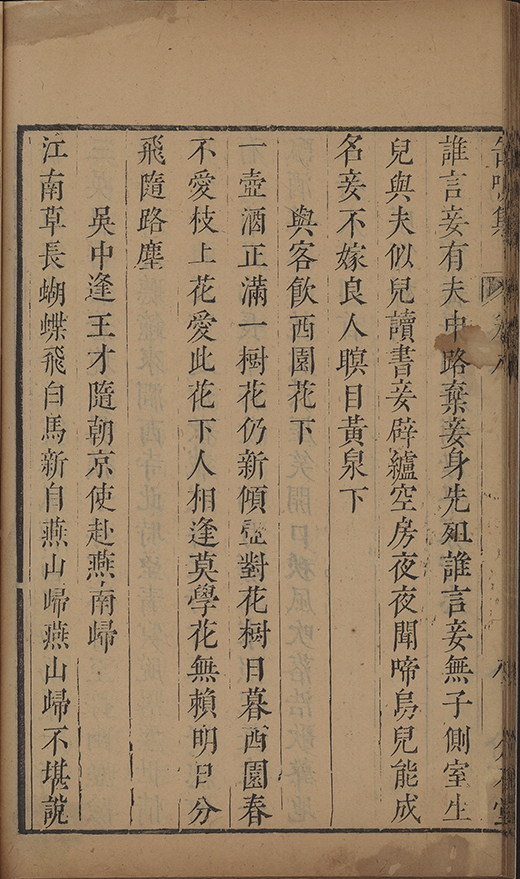 誰言妾有夫中路棄妾身先殂誰言妾無子側室生
兒與夫似兒讀書妾辟纑空房夜夜聞啼烏兒能成
名妾不嫁良人瞑目黃泉下
與客飲西園花下
一壺酒正滿一樹花仍新傾壺對花樹日暮西園春
不愛枝上花愛此花下人相逢莫學花無賴明日分
飛隨路塵
吳中逢王才隨朝京使赴燕南歸
江南草長蝴蝶飛白馬新自燕山歸燕山歸不堪說